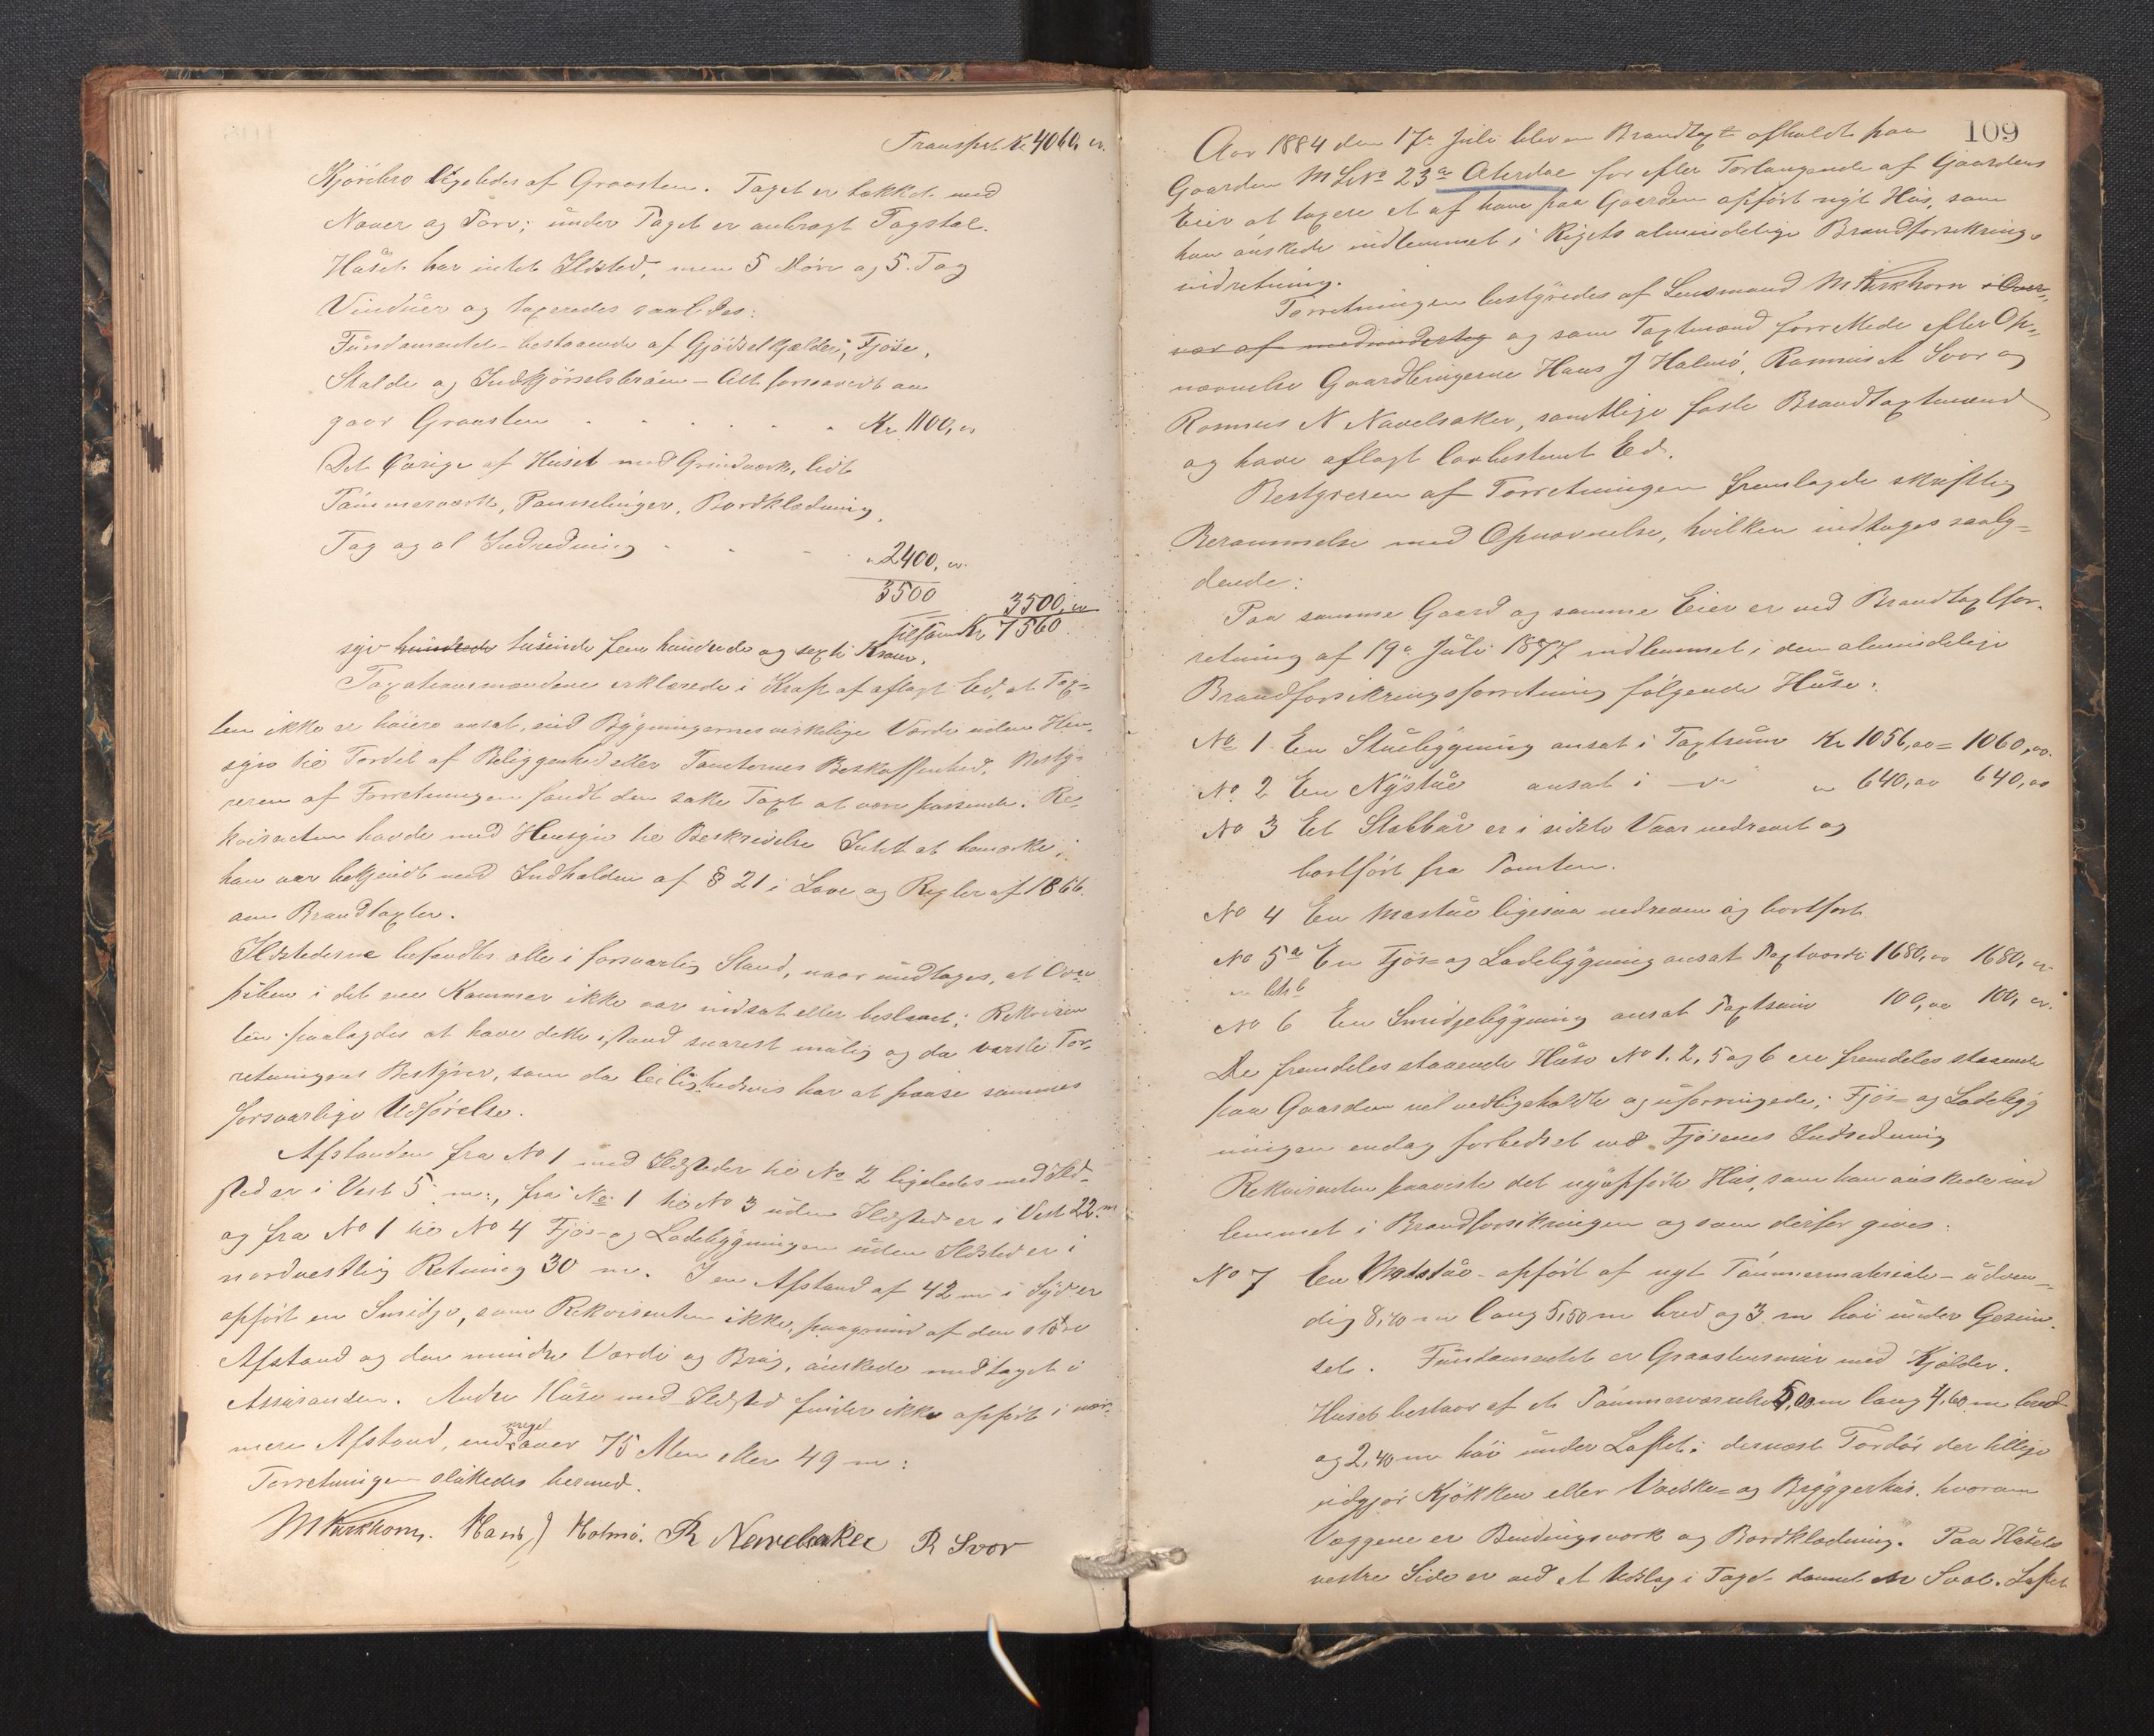 Transprt Kr 4060,
Kjörebro ligeledes af Graasten. Taget er tækket med
Næver og Torv; under Taget er anbragt Tagstol.
Huset har intet Ildsted, men 5 Döre og 5 Fag
Vinduer og taxeredes saaledes:
Fundamentet - bestaaende af Gjödselkjelder, Fjöse,
Stalde og Indkjörselsbroen - Alt forsaavidt an
gaar Graasten Kr 1100,
Det Övrige af Huset med Grindværk, lidt
Tömmerværk, Pannelinger, Bordklædning,
Tag og al Indredning " 2400,
3500 3500,
tilsam Kr 7560
syv hundrede tusinde fem hundrede og sexti Kroner.
Taxationsmændene erklærede i Kraft af aflagt Ed, at Tax-
ten ikke er höiere ansat, end Bygningernes virkelige Værdi uden Hen-
syn til Fordel af Beliggenhed eller Tomternes Beskaffenhed. Besty-
reren af Forretningen fandt den satte Taxt at være passende. Re-
kvirenten havde med Hensyn til Beskrivelse Intet at bemærke;
han var bekjendt med Indholden af § 21 i Love og Regler af 1866
om Brandtaxter.
Ildstederne befandtes alle i forsvarlig Stand, naar undtages, at Ovn
piben i det ene Kammer ikke var indsat eller beslaaet; Rekviren
ten paalagdes at have dette istand snarest mulig og da varsle For-
retningens Bestyrer, som da leilighedsvis har at paase sammes
forsvarlige Udförelse.
Afstanden fra No 1 med Ildsteder til No 2 ligeledes med Ild-
sted er i Vest 5 m:, fra No 1 til No 3 uden Ildsted er i Vest 22 m
og fra No 1 til No 4 Fjös- og Ladebygningen uden Ildsted er i
nordvestlig Retning 30 m. I en Afstand af 42 m i Syd er
opfört en Smidje, som Rekvirenten ikke, paagrund af den större
Afstand og den mindre Værdi og Brug, önskede medtaget i
Assurancen. Andre Huse med Ildsted findes ikke opfört i nær-
mere Afstand, end meget over 75 Alen eller 49 m:
Forretningen sluttedes hermed.
M Kirkhorn. Hans J Holmö. R Navelsaker R Svor
109
Aar 1884 den 17de Juli blev en Brandtaxt afholdt paa
Gaarden M LNo 23a Aterdal for efter Forlangende af Gaardens
Eier at taxere et af ham paa Gaarden opfört nyt Hus, som
han önskede indlemmet i Rigets almindelige Brandforsikrings
indretning.
Forretningen bestyredes af Lensmand M Kirkhorn i Over-
vær af medunderteg og som Taxtmænd fremmödte efter Op-
nævnelse Gaardbrugerne Hans J Holmö, Rasmus A Svor og
Rasmus N Navelsaker, samtlige faste Brandtaxtmænd
og have aflagt lovbestemt Ed.
Bestyreren af Forretningen fremlagde skriftlig
Berammelse med Opnævnelse, hvilken indtages saaly-
dende:
Paa samme Gaard og samme Eier er ved Brandtaxtfor-
retning af 19de Juli 1877 indlemmet i den almindelige
Brandforsikringsforretning fölgende Huse:
No 1 En Stuebygning ansat i Taxtsum Kr 1056,00 = 1060,00.
No 2 En Nystue ansat i — " 640,00 640,00
No 3 Et Stabbur er i sidste Vaar nedrevet og
bortfört fra Tomten.
No 4 En Mastue ligesaa nedreven og bortfört
No 5a En Fjös- og Ladebygning ansat Taxtværdi 1680,00 1680,
No 6 En Smidjebygning ansat Taxtsum 100,00 100,
De fremdeles staaende Huse No 1. 2, 5 og 6 ere fremdeles staaende
paa Gaarden vel vedligeholdte og uforringede; Fjös- og Ladebyg
ningen endog forbedret ved Fjösenes Indredning
Rekvirenten paaviste det nyopförte Hus, som han önskede ind
lemmet i Brandforsikringen og som derfor gives:
No 7 En Madstue - opfört af nyt Tömmermateriale - udven-
dig 8,40 m lang 5,50 m bred og 3 m höi under Gesim-
set. Fundamentet er Graastensmur med Kjelder.
Huset bestaar af et Tömmerværelse 5,00 m lang 4,60 m bred
og 2,40 m höi under Loftet; dernæst Fordör der tillige
udgjör Kjökken eller Vadske- og Bryggerhus, hvorom
Væggene er Bindingsværk og Bordklædning. Paa Husets
vestre Side er ved et Udslag i Taget dannet en Sval. Loftet